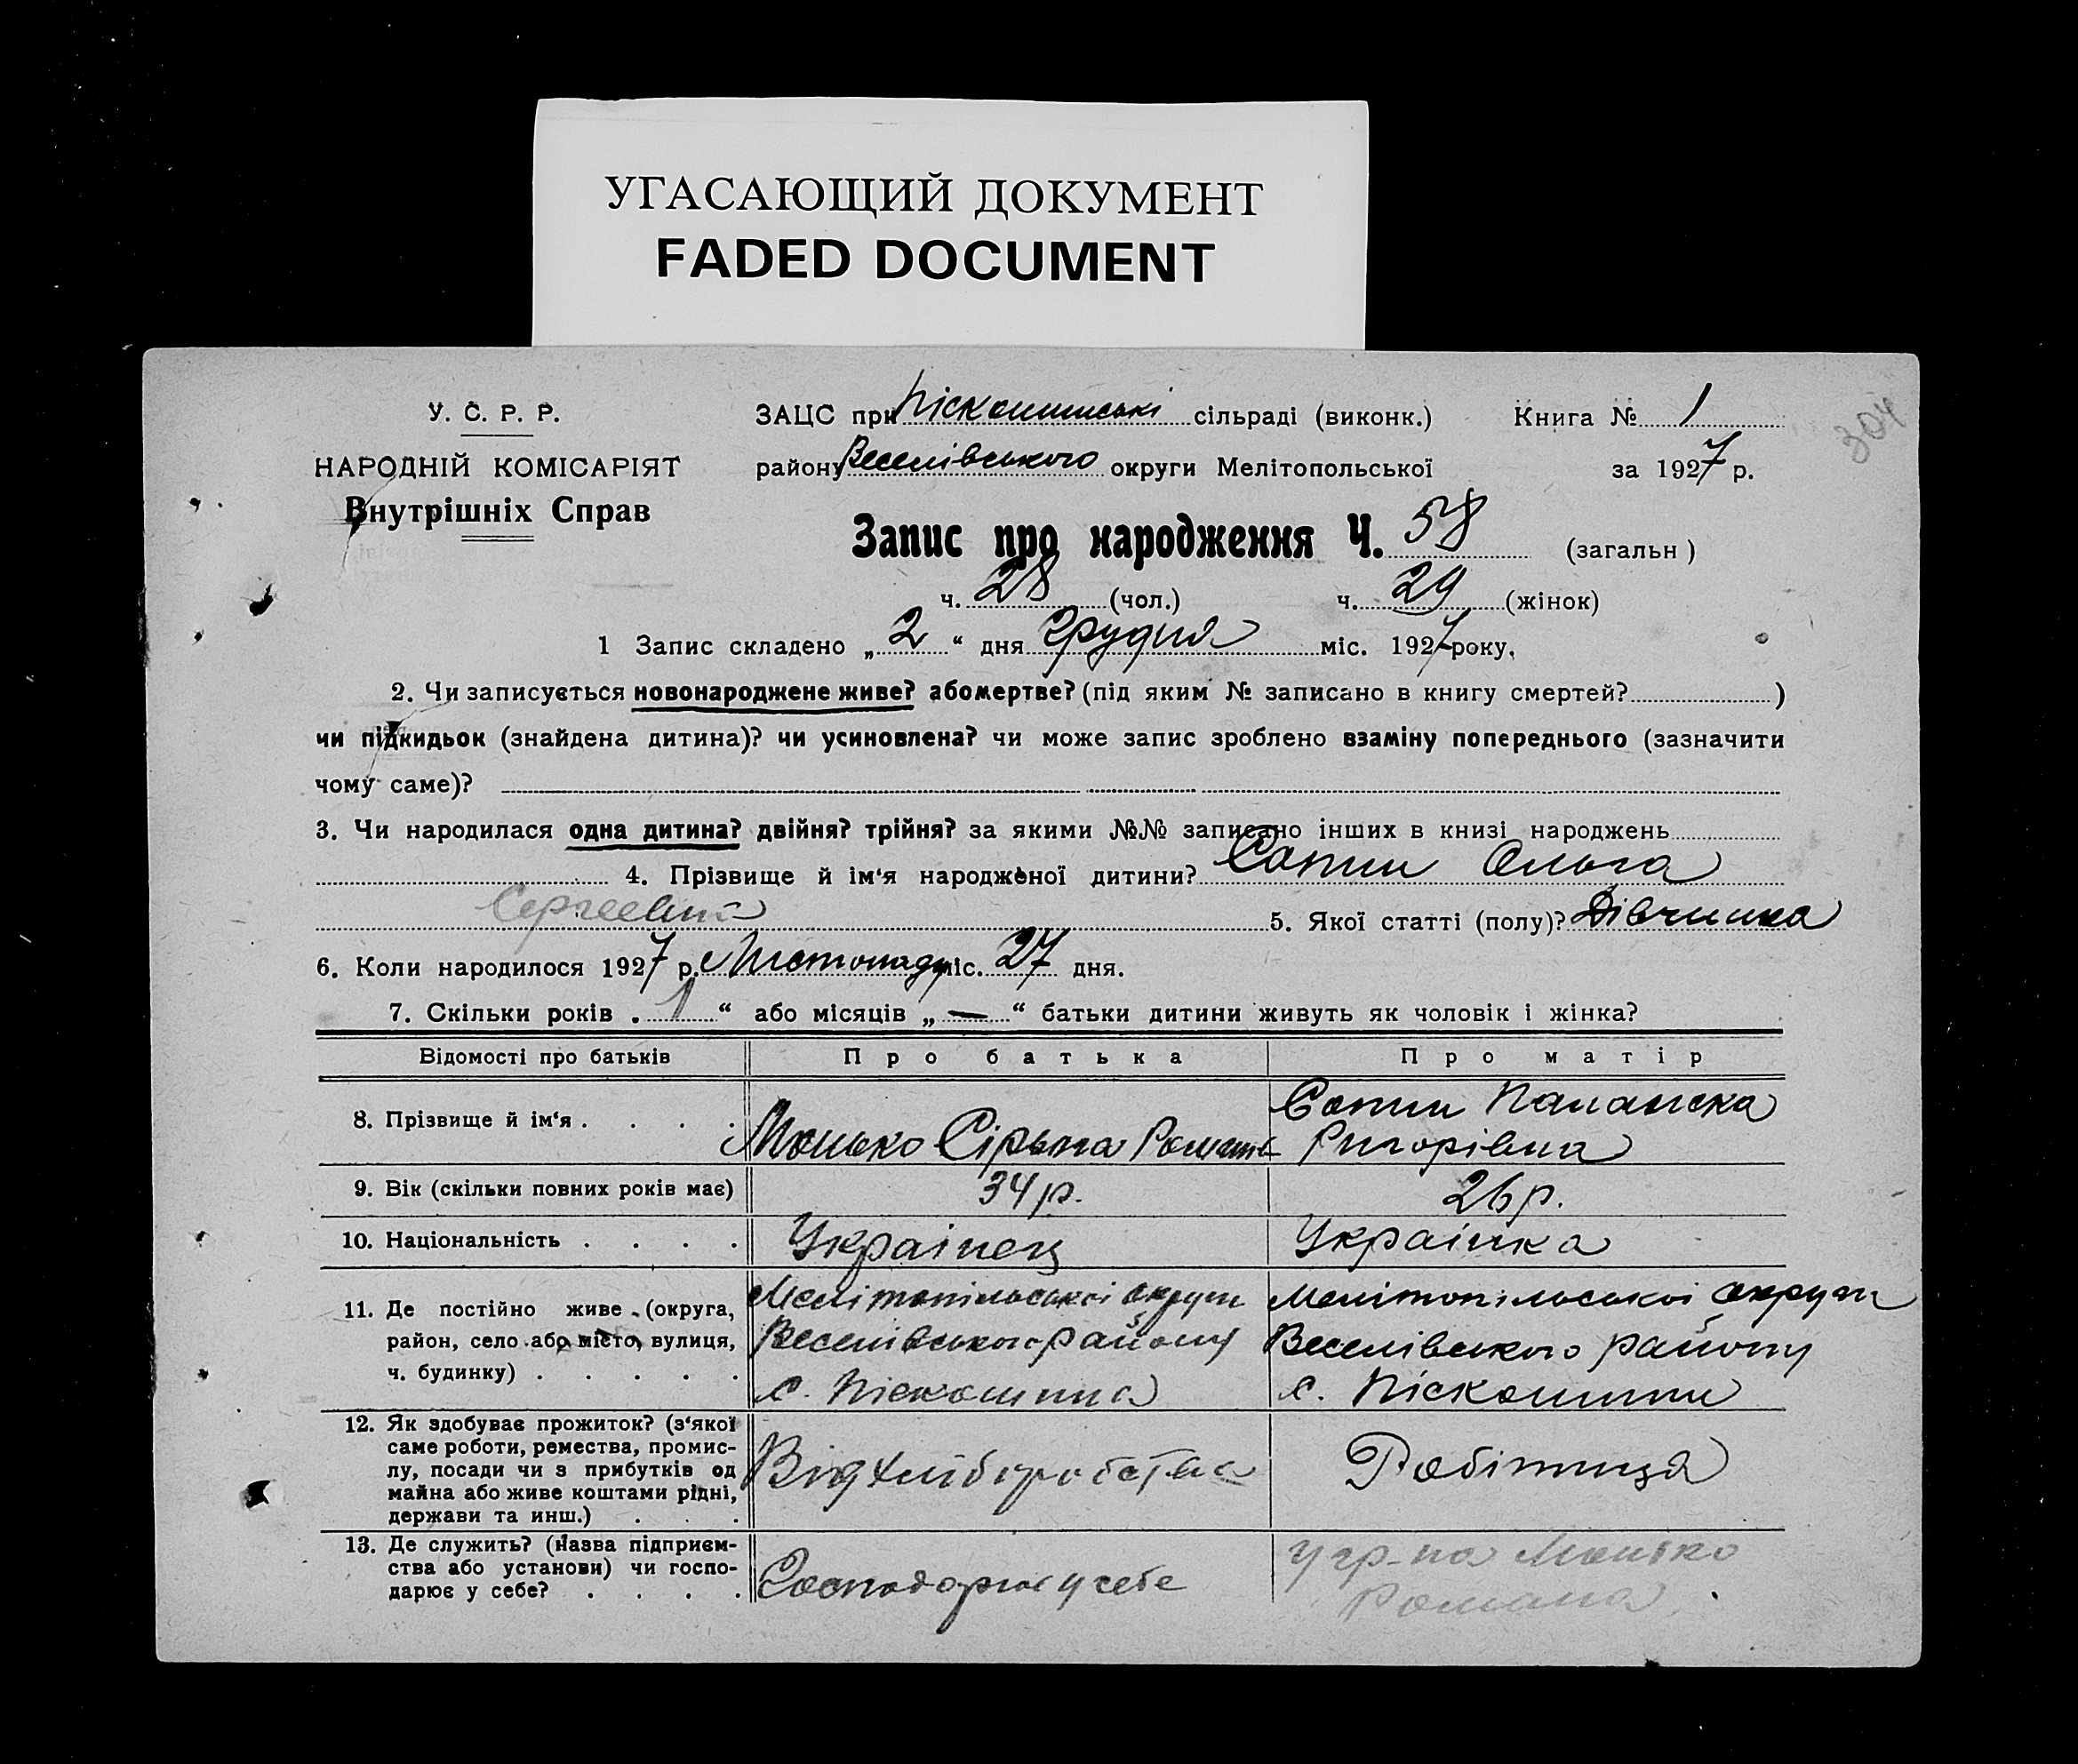 УГАСАЮЩИЙ ДОКУМЕНТ
FADED DOCUMENT
304
У. С. Р. Р.
НАРОДНІЙ КОМІСАРІЯТ
Внутрішніх Справ
ЗАЦС при сільраді (виконк.) Книга № 1
району Веселівського округи Мелітопольської за 1927 р.
Запис про народження Ч. 58 (загальн)
ч. 28 (чол.) ч. 29 (жінок)
1 Запис складено „ 2 “ дня Грудня міс. 1927 року.
2. Чи записується новонароджене живе? або мертве? (під яким № записано в книгу смертей? )
чи підкидьок (знайдена дитина)? чи усиновлена? чи може запис зроблено взаміну попереднього (зазначити
чому саме)?
3. Чи народилася одна дитина? двійня? трійня? за якими №№ записано інших в книзі народжень
4. Прізвище й ім‘я народженої дитини? Ольга
5. Якої статті (полу)? Дівчинка
6. Коли народилося 1927 р. Листопаду міс. 27 дня.
7. Скільки років „ 1 “ або місяців „ — “ батьки дитини живуть як чоловік і жінка?
Відомості про батьків Про батька Про матір
8. Прізвище й ім‘я . . . .
Монько Сірьога
Ригорівна
9. Вік (скільки повних років має) 34 р. 26 р.
10. Національність . . . . Українець Українка
11. Де постійно живе (округа, Мелітопільської округи Мелітопільської округи
район, село або місто, вулиця, Веселівського району Веселівського району
ч. будинку) . . . . . с. Піскошина с. Піскошини
12. Як здобуває прожиток? (з‘якої
саме роботи, ремества, промис-
лу, посади чи з прибутків од Від хліборобства Робітниця
майна або живе коштами рідні,
держави та инш.) . . .
13. Де служить? (Назва підприєм- У гр-на Монько
ства або установи) чи госпо- Господарює у себе Романа
дарює у себе? . . . .